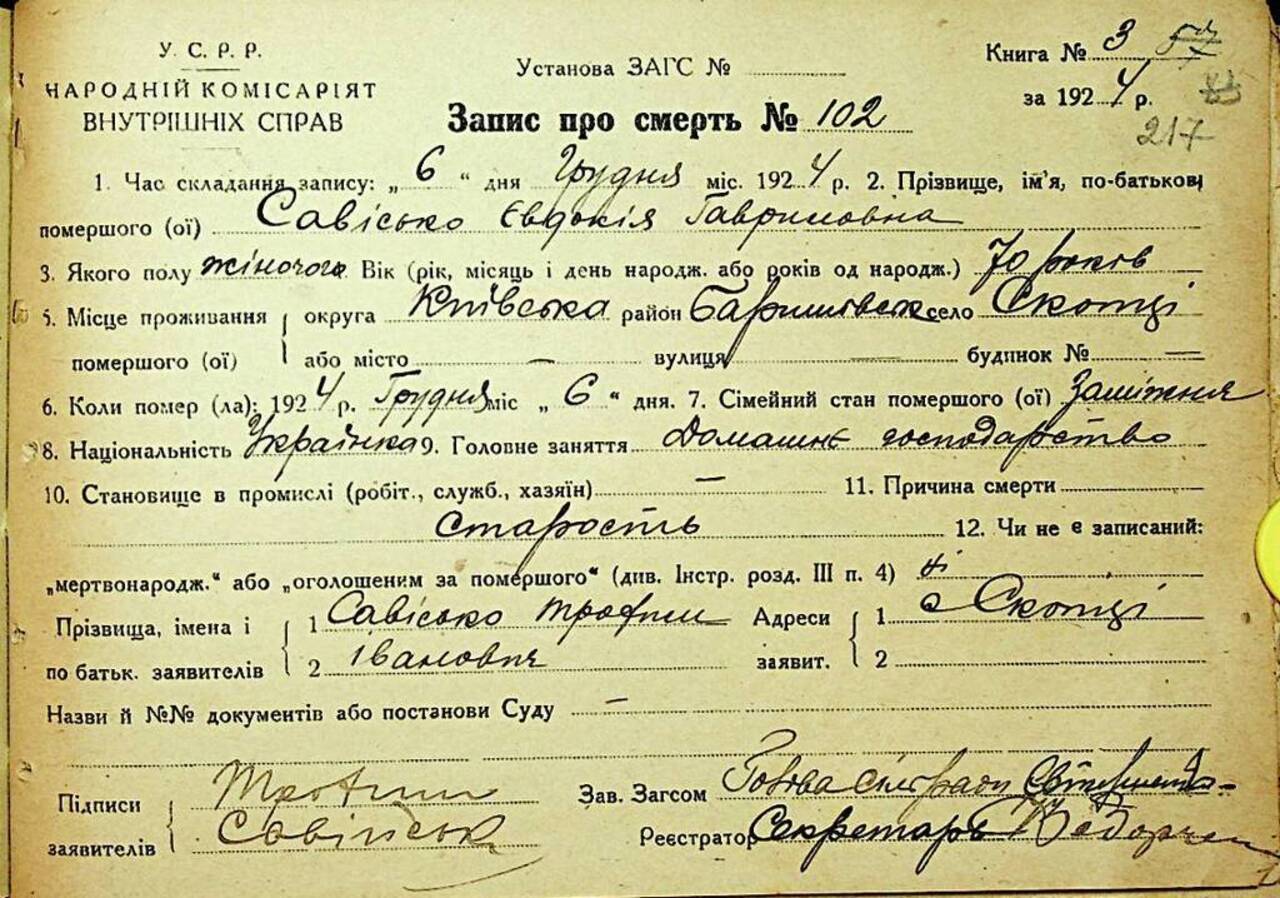 У. С. Р. Р.
НАРОДНІЙ КОМІСАРІЯТ
ВНУТРІШНІХ СПРАВ
Установа ЗАГС №
Книга № 3 57
за 1924 р.
217
Запис про смерть № 102
1. Час складання запису: „ 6 “ дня Грудня міс. 1924 р. 2. Прізвище, ім’я, по-батькові
помершого (ої) Савісько Євдокія Гавриловна
3. Якого полу жіночого Вік (рік, місяць і день народж. або років од народж.) 70 років
5. Місце проживання округа Київська район Баришівськ село Скотці
помершого (ої) або місто — вулиця — будинок № —
6. Коли помер (ла): 1924 р. Грудня міс „ 6 “ дня. 7. Сімейний стан помершого (ої) Заміжня
8. Національність Українка 9. Головне заняття Домашнє господарство
10. Становище в промислі (робіт., служб., хазяїн) — 11. Причина смерти
старость 12. Чи не є записаний:
„мертвонародж.“ або „оголошеним за помершого“ (див. Інстр. розд. III п. 4)
Прізвища, імена і 1 Савісько Трофим Адреси 1 с Скотці
по батьк. заявителів 2 Іванович заявит. 2
Назви й №№ документів або постанови Суду —
Підписи Трофим Зав. Загсом Голова сільради
заявителів Савіськ Реєстратор Секретарь